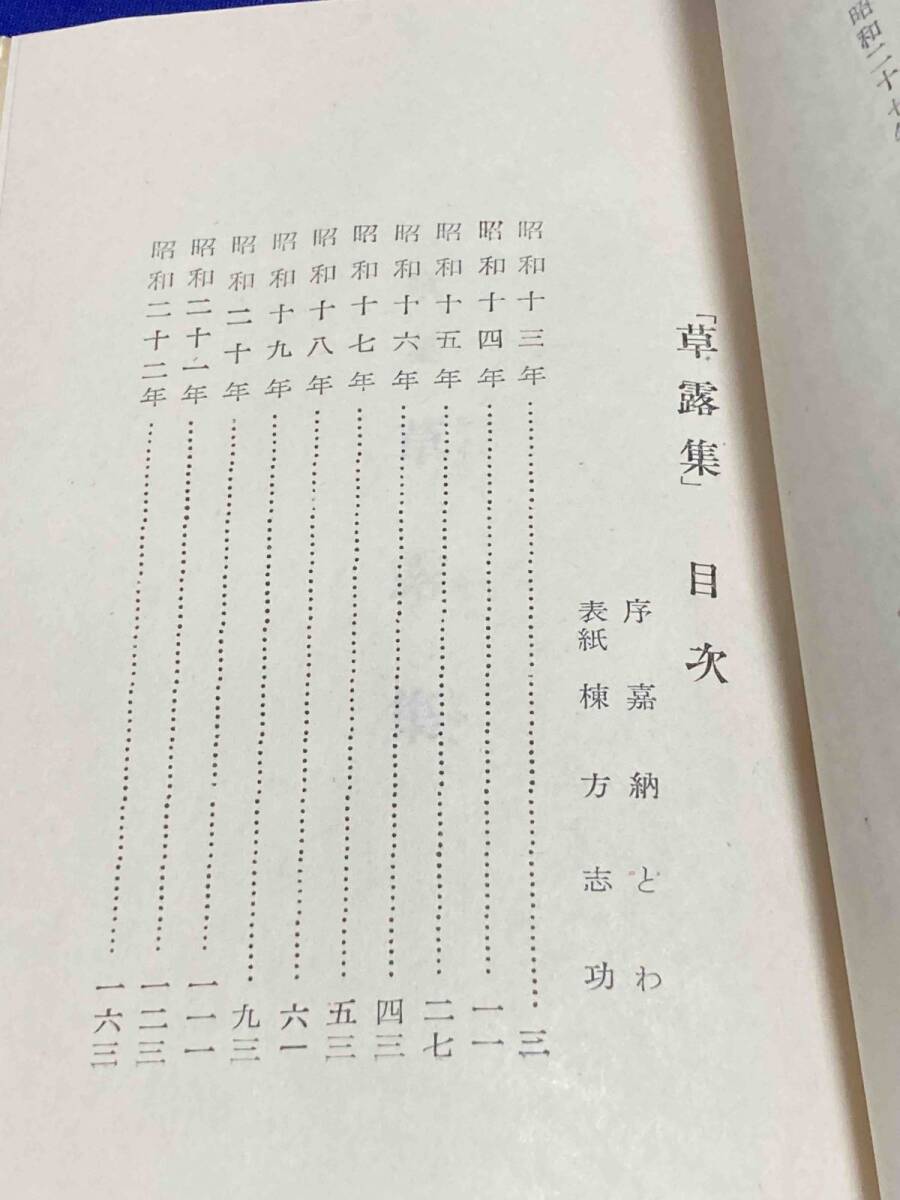 昭和二十七
「草露集」 目次
序 嘉納とわ
表紙 棟方志功
昭和十三年……三
昭和十四年……一一
昭和十五年……二七
昭和十六年……四三
昭和十七年……五三
昭和十八年……六一
昭和十九年……九三
昭和二十年……一一一
昭和二十一年……一二三
昭和二十二年……一六三